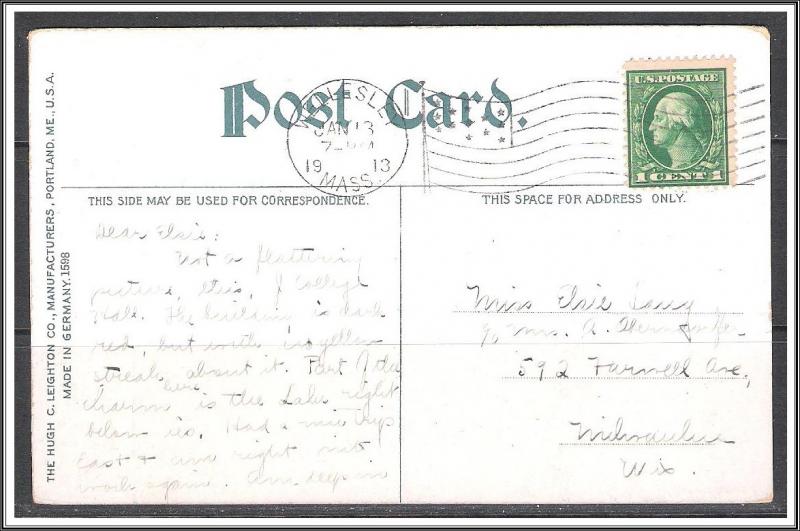 Post Card.
WELLESLEY
JAN 13
7 PM
19 13
MASS.
U.S. POSTAGE
1 CENT 1
THIS SIDE MAY BE USED FOR CORRESPONDENCE.
THIS SPACE FOR ADDRESS ONLY.
THE HUGH C. LEIGHTON CO., MANUFACTURERS, PORTLAND, ME., U.S.A.
MADE IN GERMANY. 1598
Dear Elsie:
Not a flattering
picture, this, of College
Hall. The building is dark
red, but with no yellow
streak about it. Part of the
charm here is the Lake right
below us. Had a nice trip
East & am right into
work again. Am deep in
Miss Elsie
c/o Mrs. A.
592 Farwell Ave,
Milwaukee
Wis.